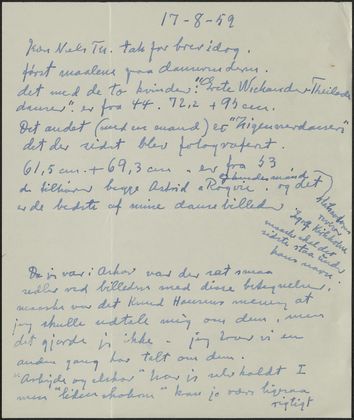 17-8-59
Kære Niels Th. tak for brev idag.
først maalene paa dansemøderne.
det med de to kvinder: "Grete Wiekander - Theilade
danser": er fra 44. 72,2 + 95 cm.
Det andet (med en mand) er "Zigeunerdanser"
det der sidst blev fotograferet.
61,5 cm. + 69,3 cm. er fra 53
de tilhører begge Astrid og det
er de bedste af mine dansebilleder
Ingolf
maaske skal der
sidst staa under
hans navn.
Da jeg var i Askov var der ret smaa
sedler ved billederne med disse betegnelser,
maaske var det Knud Hannus mening at
jeg skulle udtale mig om dem, men
det gjorde jeg ikke - jeg tror vi en
anden gang har talt om dem.
"Arbejde og elskov" har jeg selv kaldt I
men "liden skoven" kan jo være ligesaa
rigtigt